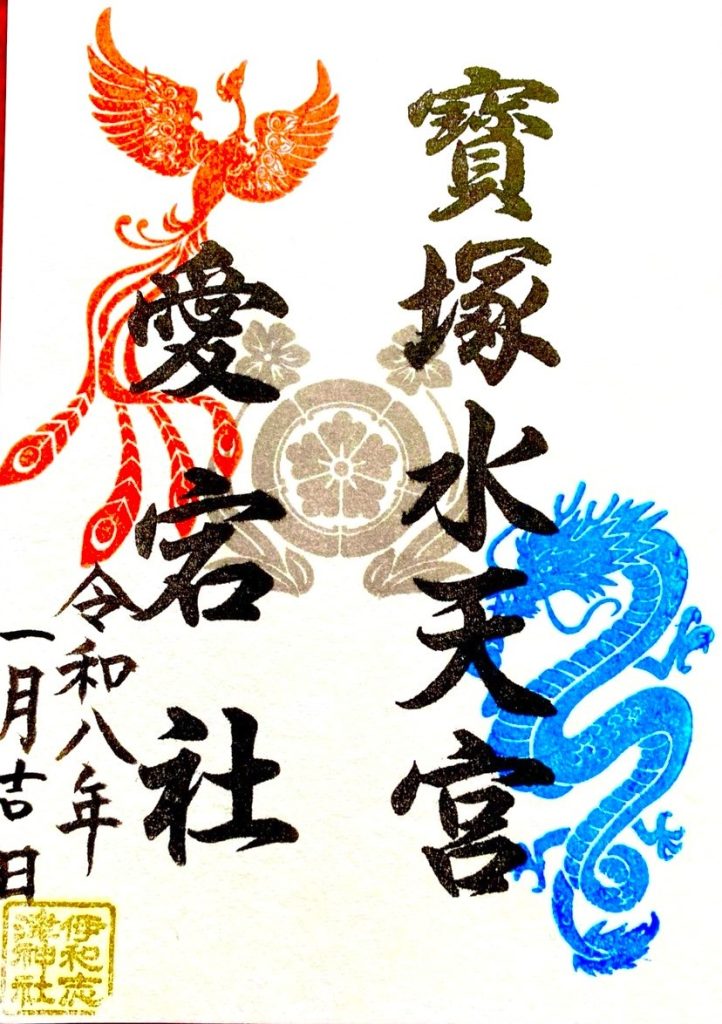 寶塚水天宮
愛宕社
令和八年
一月吉日
伊和志
津神社